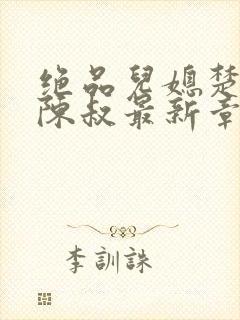 绝品兒媳楚
陈叔最新章
李訓誅